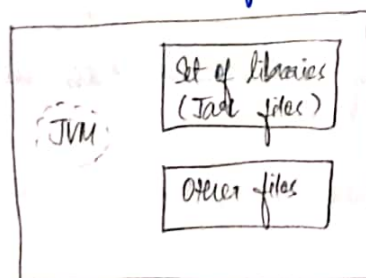 JVM
Set of libraries
(Jar files)
Other files